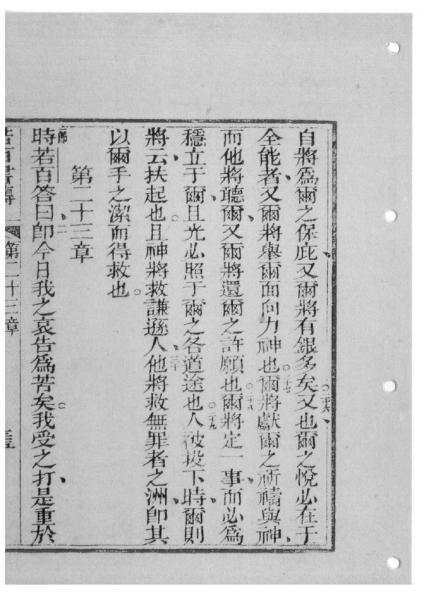 自將爲爾之保庇又爾將有銀多矣○二十六又也爾之悅必在于
全能者又爾將舉爾面向力神也○二十七爾將獻爾之祈禱與神
而他將聽爾又爾將還爾之許願也○二十八爾將定一事而必爲
穩立于爾且光必照于爾之各道途也○二十九人被投下時爾則
將云扶起也○且神將救謙遜人○三十他將救無罪者之洲卽其
以爾手之潔而得救也○
第二十三章
一節時若百答曰二卽今日我之哀告爲苦矣○我受之打是重於
若百書傳
第二十三章